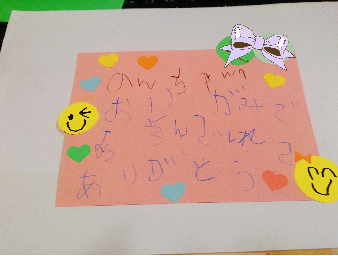 のんちゃん
おりがみで
あそんでくれて
ありがとう